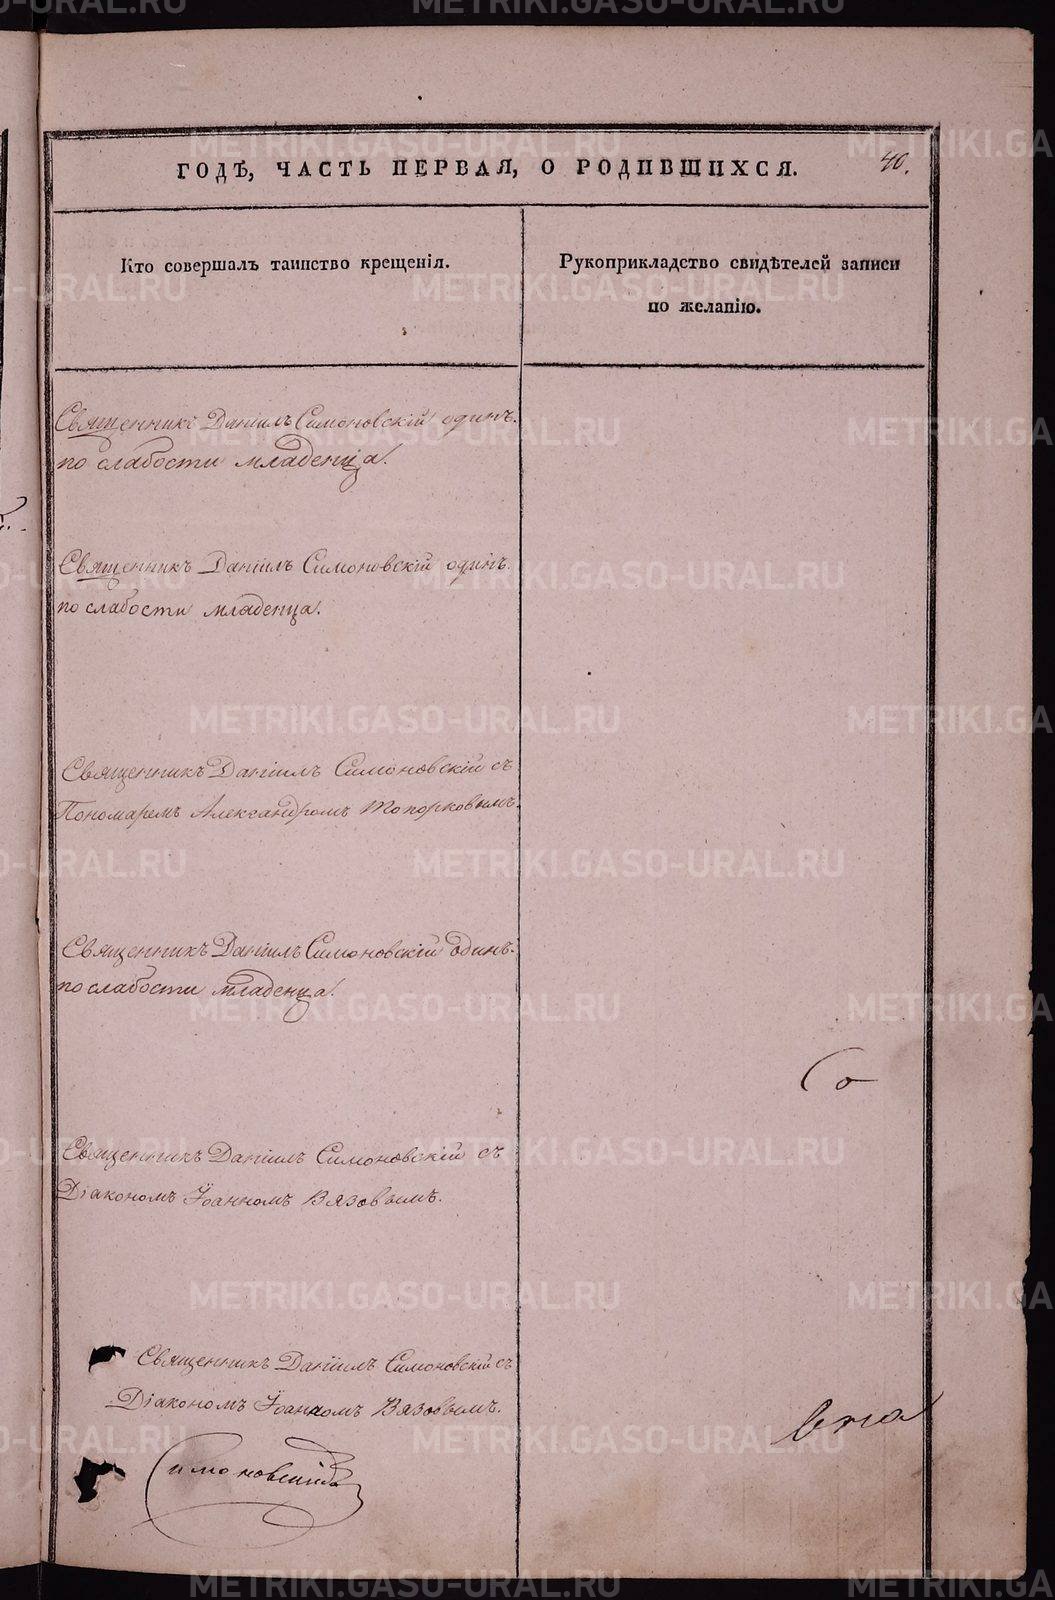 ГОДѢ, ЧАСТЬ ПЕРВАЯ, О РОДИВШИХСЯ.
40.
Кто совершалъ таинство крещенія.
Рукоприкладство свидѣтелей записи
по желанію.
Священникъ Даніилъ Симоновскій одинъ.
по слабости младенца.
Священникъ Даніилъ Симоновскій одинъ.
по слабости младенца.
Священникъ Даніилъ Симоновскій съ
Пономаремъ Александромъ Топорковымъ.
Священникъ Даніилъ Симоновскій одинъ.
по слабости младенца.
Со
Священникъ Даніилъ Симоновскій съ
Діакономъ Іоанномъ Вязовымъ.
Священникъ Даніилъ Симоновскій съ
Діакономъ Іоанномъ Вязовымъ.
Симоновскій
METRIKI.GASO-URAL.RU